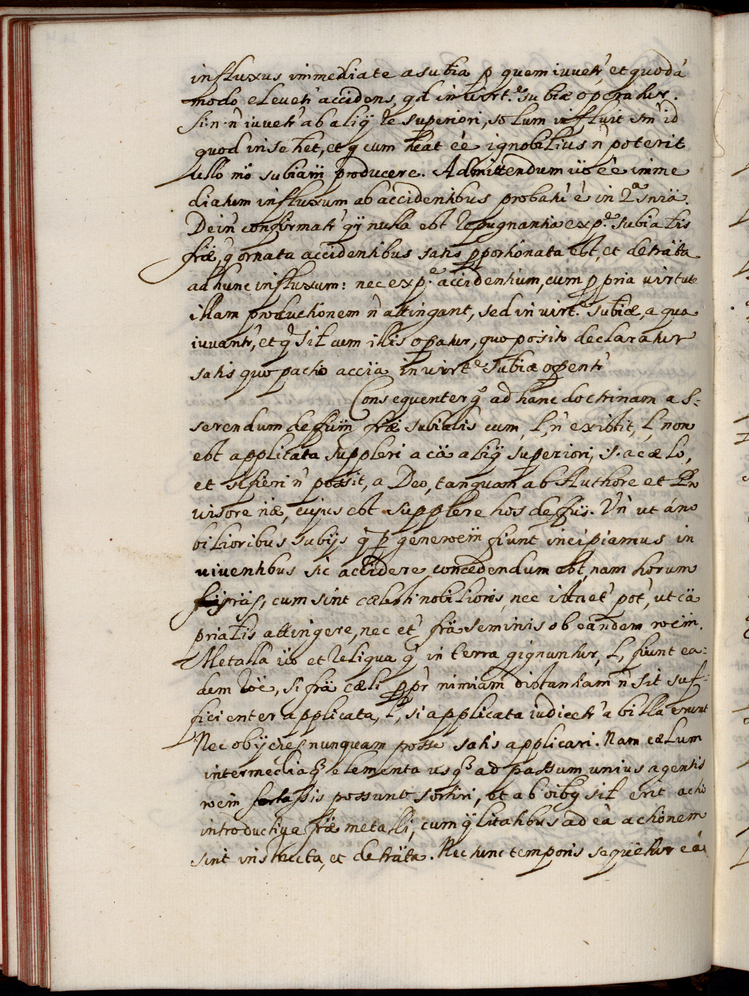 influxus immediate a subīa p quem iuvetr, et quodā
modo elevetr accidens, qd in virt.e subīæ operatur.
Si .n. ñ iuvetr ab aliq̃ re superiori, solum influit sm̃ id
quod in se het, et q cum heat eē ignobilius ñ poterit
ullo mō subīam producere. Admittendum uō eē imme
diatum influxum ab accidentibus probatr in 2.a snīa.
Dein confirmatr q̃ nulla est repugnantia ex p.e subīalis
fræ, q ornata accidentibus satis pportionata est, et detrāta
ad hunc influxum: nec ex p.e accidentium, cum ppria virtute
illam productionem ñ attingant, sed in virt.e subīæ, a qua
iuvantr, et q̃ Sil cum illis opatur, quo posito declaratur
satis quo pacto accīa in virt.e subīæ opentr
Consequenter q̃ ad hanc doctrinam as-
serendum defum̃ fræ subīalis cum, l, ñ existit, l, non
est applicata suppleri a cāa aliq̃ superiori, s. a cælo,
et si fieri ñ possit, a Deo, tanquam ab Authore et Pro
visore nāæ, cujus est supplere hos defus. Vñ ut á no
bilioribus subījs q̃ p generoēm fiunt incipiamus in
viventibus sic accidere concedendum est, nam horum
frās, cum sint cælesti nobiliores, nec istnet pot, ut cā
prialis attingere, nec et frā seminis ob eandem roēm.
Metalla uō et reliqua q̃ in terra gignuntur, l, fiunt ea-
dem roē, si frā cæli ppr nimiam distantiam ñ sit suf-
ficienter applicata, l, si applicata iudicetr ab illa erunt
Nec obijcies nunquam posse satis applicari. Nam cælum
intermediaq̃ elementa usq̃ ad passum unius agentis
roēm fortassis possunt sortiri, et ab oibq sil erit actio
introductiva fræ metalli, cum q̃litatibus ad eā actionem
sint instructa, et detrāta. Nec hinc temporis sequetur eā